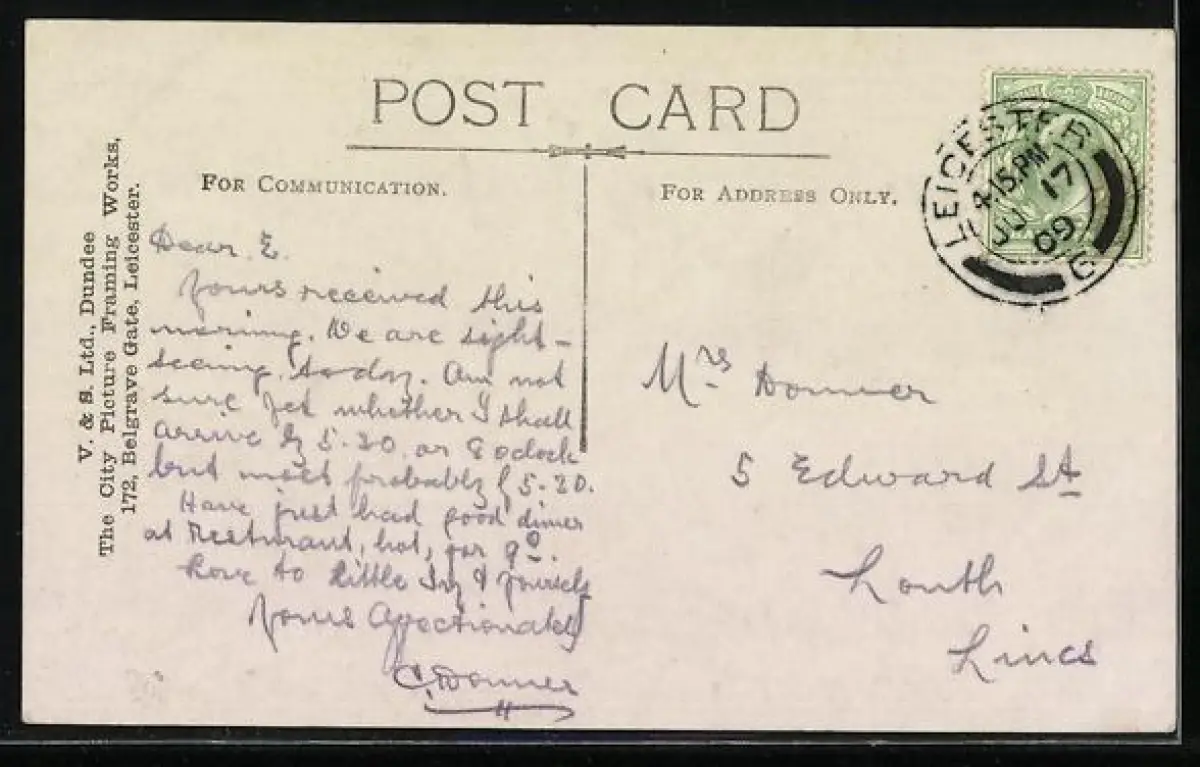 POST CARD
FOR COMMUNICATION.
FOR ADDRESS ONLY.
V. & S. Ltd., Dundee
The City Picture Framing Works,
172, Belgrave Gate, Leicester.
LEICESTER
4.15.PM
JU 17
09
Dear E.
Yours received this
morning. We are sight-
seeing today. Am not
sure yet whether I shall
arrive by 5.20. or 8 oclock
but most probably by 5.20.
Have just had good dinner
at Resturant, hot, for 9D.
Love to little & yourself
Yours Affectionately
C. Donner
Mrs Donner
5 Edward St
Louth
Lincs